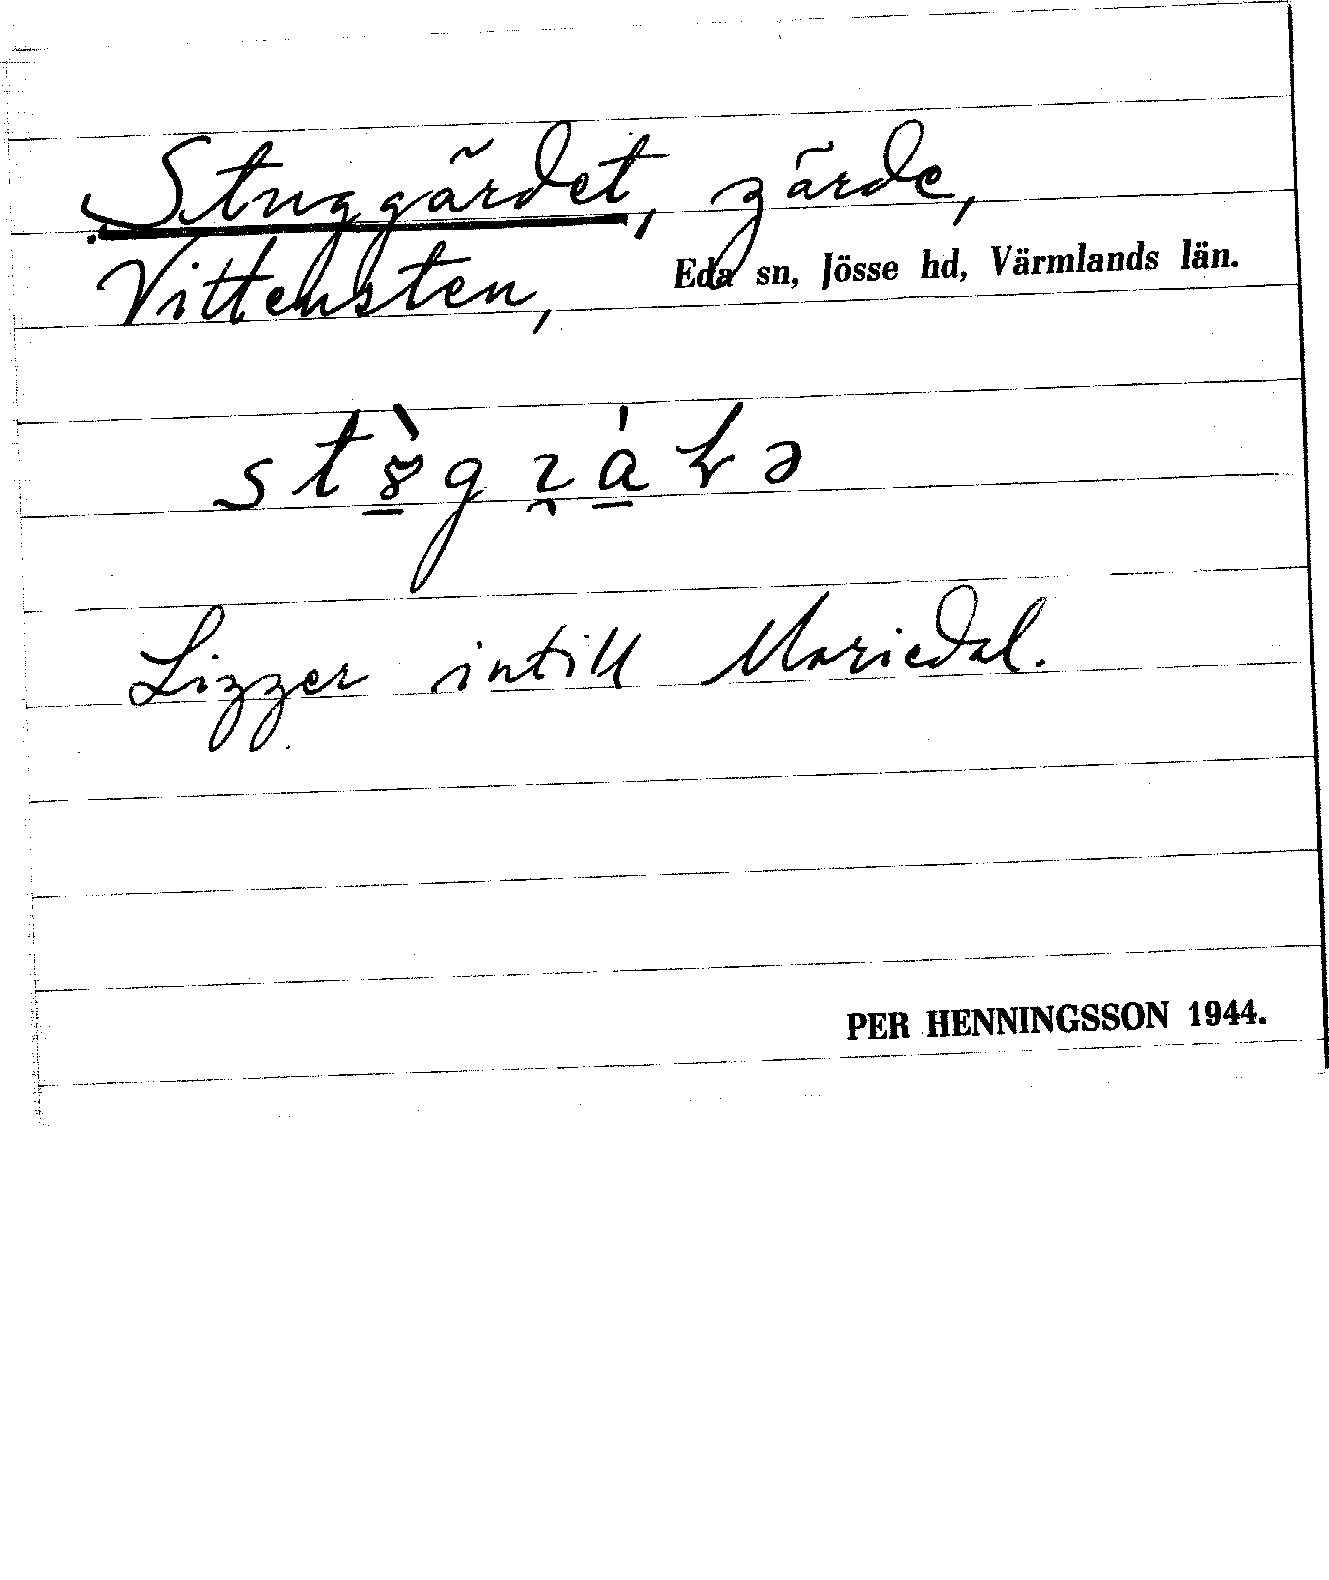 Stuggärdet, gärde,
Vittensten, Eda sn, Jösse hd, Värmlands län.
Ligger intill Mariedal.
PER HENNINGSSON 1944.